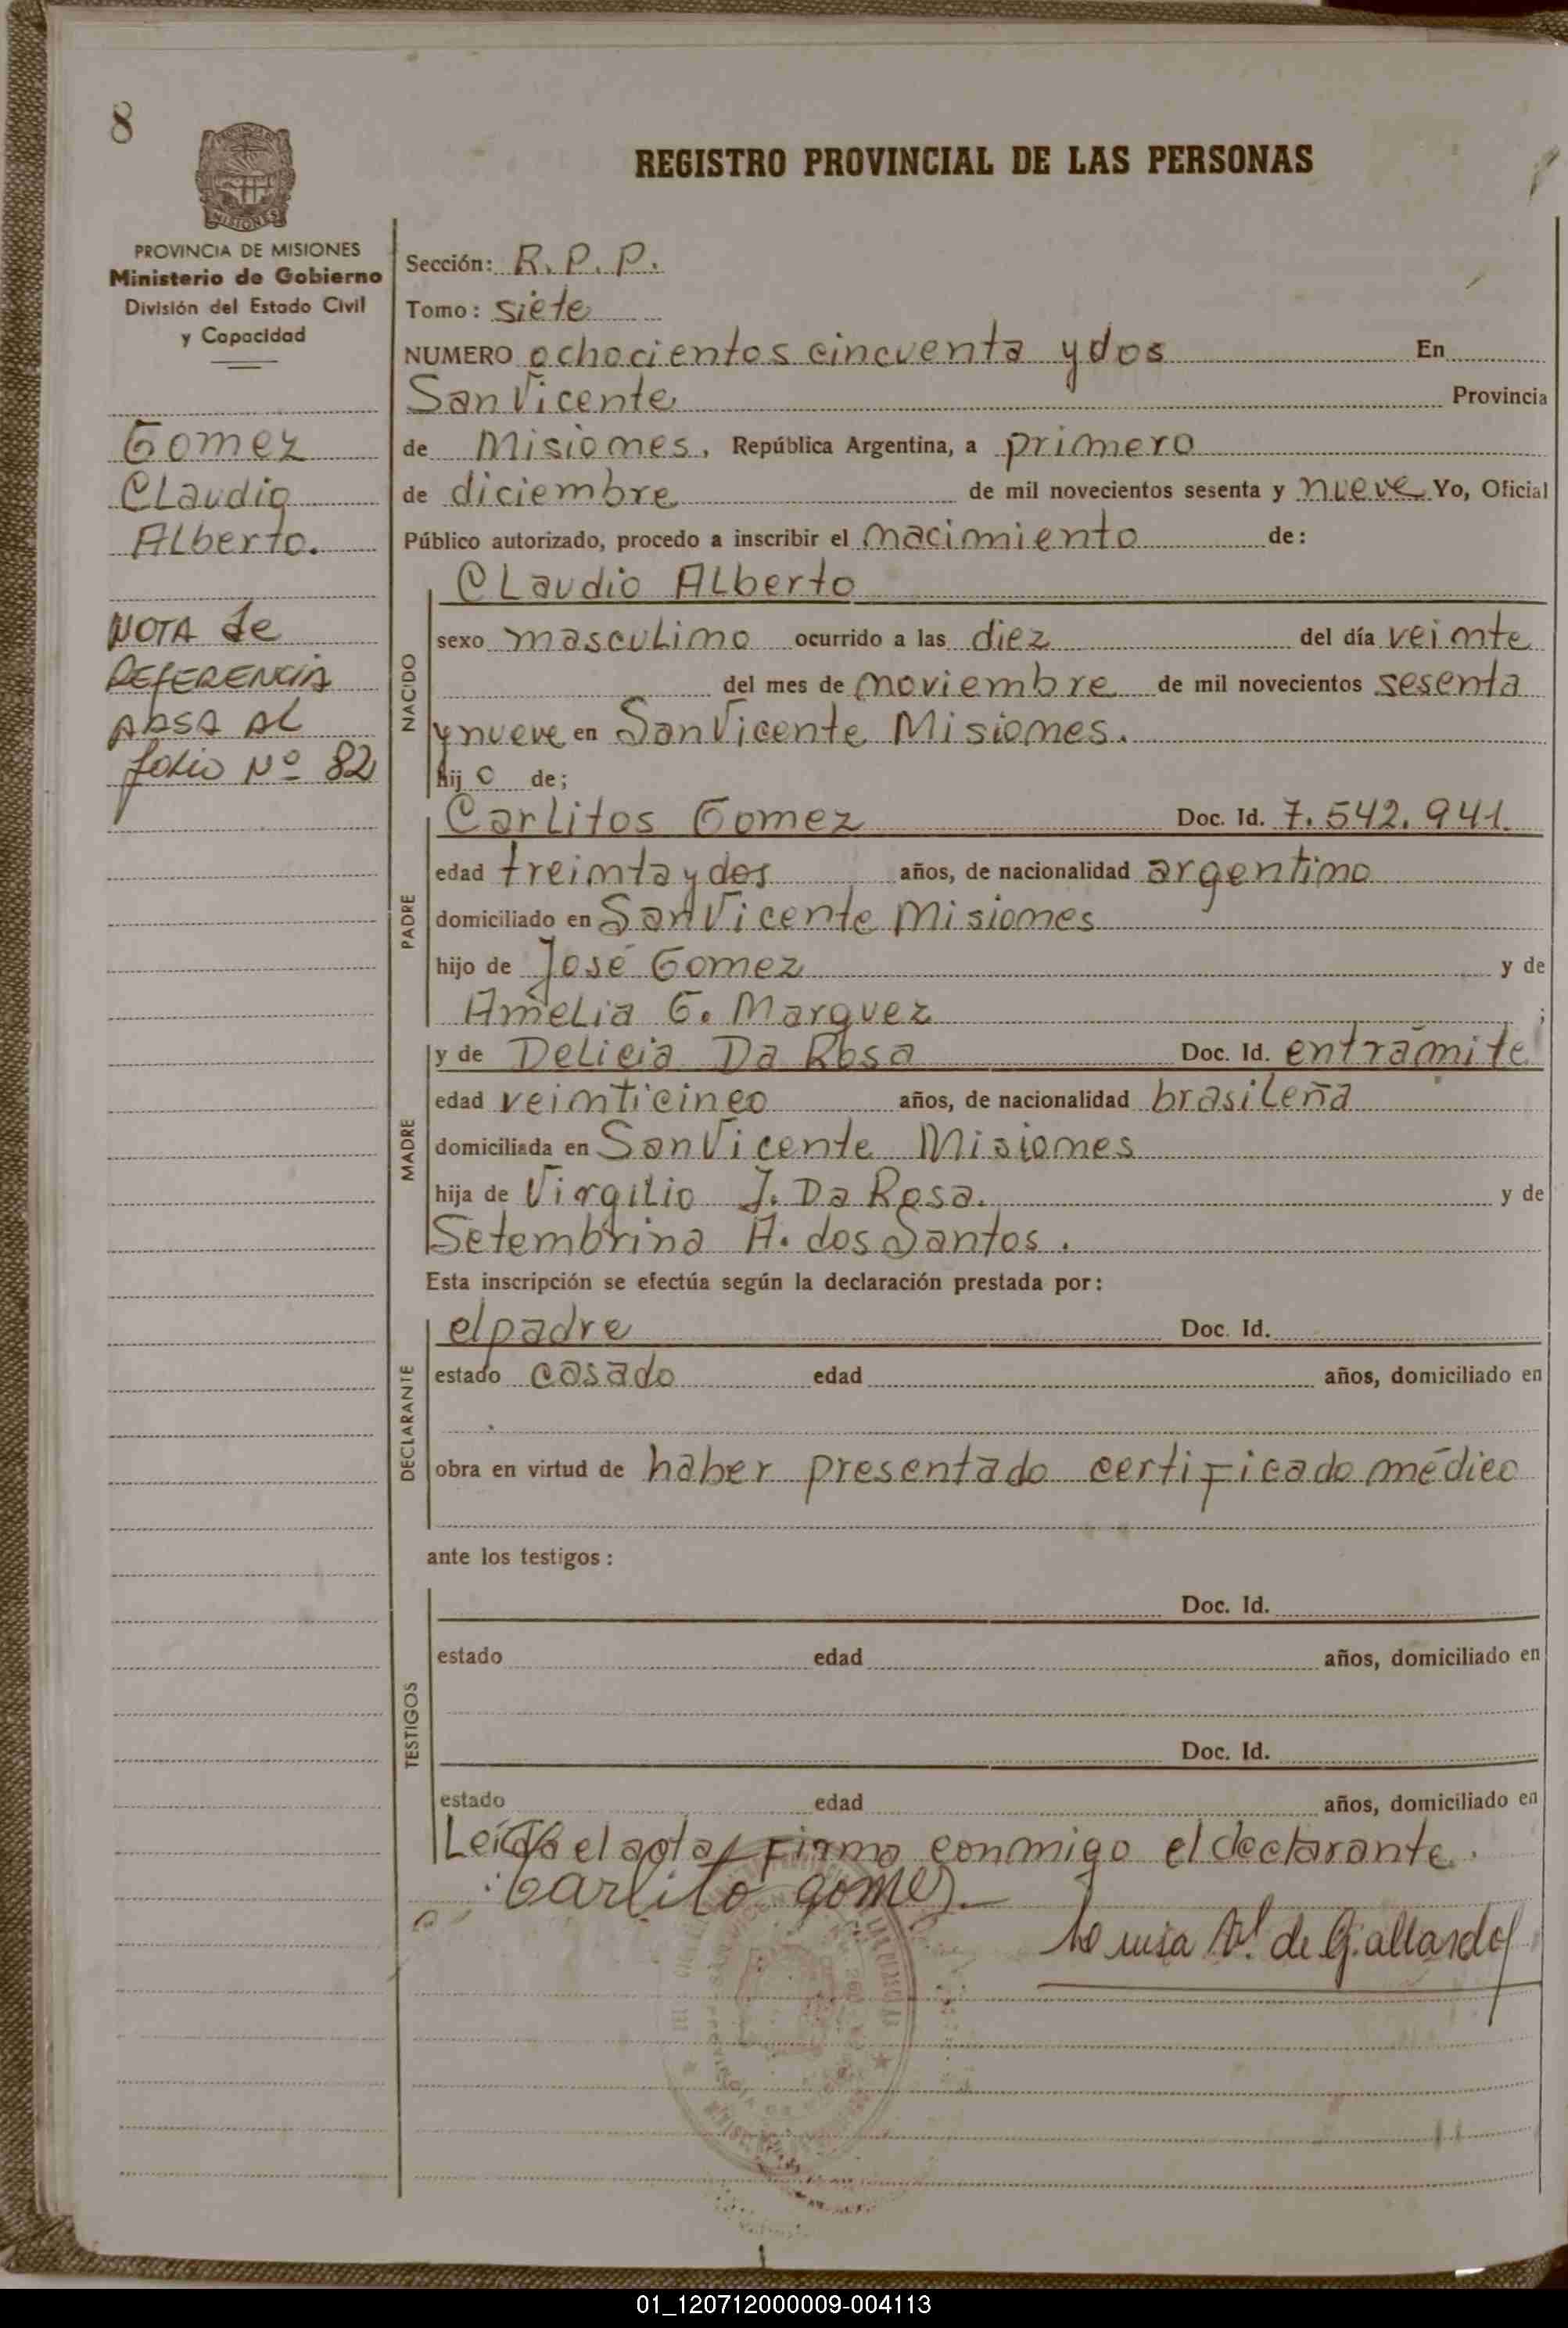 8
PROVINCIA DE MISIONES
Ministerio de Gobierno
División del Estado Civil
y Capacidad
Gomez
Claudio
Alberto.
NOTA de
REFERENCIA
PASA AL
folio Nº 82
REGISTRO PROVINCIAL DE LAS PERSONAS
Sección: R. P. P.
Tomo: siete
NUMERO ochocientos cincuenta y dos En
San Vicente Provincia
de Misiones, República Argentina, a primero
de diciembre de mil novecientos sesenta y nueve Yo, Oficial
Público autorizado, procedo a inscribir el nacimiento de:
NACIDO
Claudio Alberto
sexo masculino ocurrido a las diez del día veinte
del mes de noviembre de mil novecientos sesenta
y nueve en San Vicente Misiones.
hij o de;
PADRE
Carlitos Gomez Doc. Id. 7.542.941
edad treinta y dos años, de nacionalidad argentino
domiciliado en San Vicente Misiones
hijo de José Gomez y de
Amelia G. Marquez ;
MADRE
y de Delicia Da Rosa Doc. Id. en trámite
edad veinticinco años, de nacionalidad brasileña
domiciliada en San Vicente Misiones
hija de Virgilio J. Da Rosa. y de
Setembrina A. dos Santos.
Esta inscripción se efectúa según la declaración prestada por:
DECLARANTE
el padre Doc. Id.
estado casado edad años, domiciliado en
obra en virtud de haber presentado certificado médico
ante los testigos:
TESTIGOS
Doc. Id.
estado edad años, domiciliado en
Doc. Id.
estado edad años, domiciliado en
Leída el acta, firma conmigo el declarante.
Carlito gomez
Luisa V. de Gallardo
01_120712000009-004113